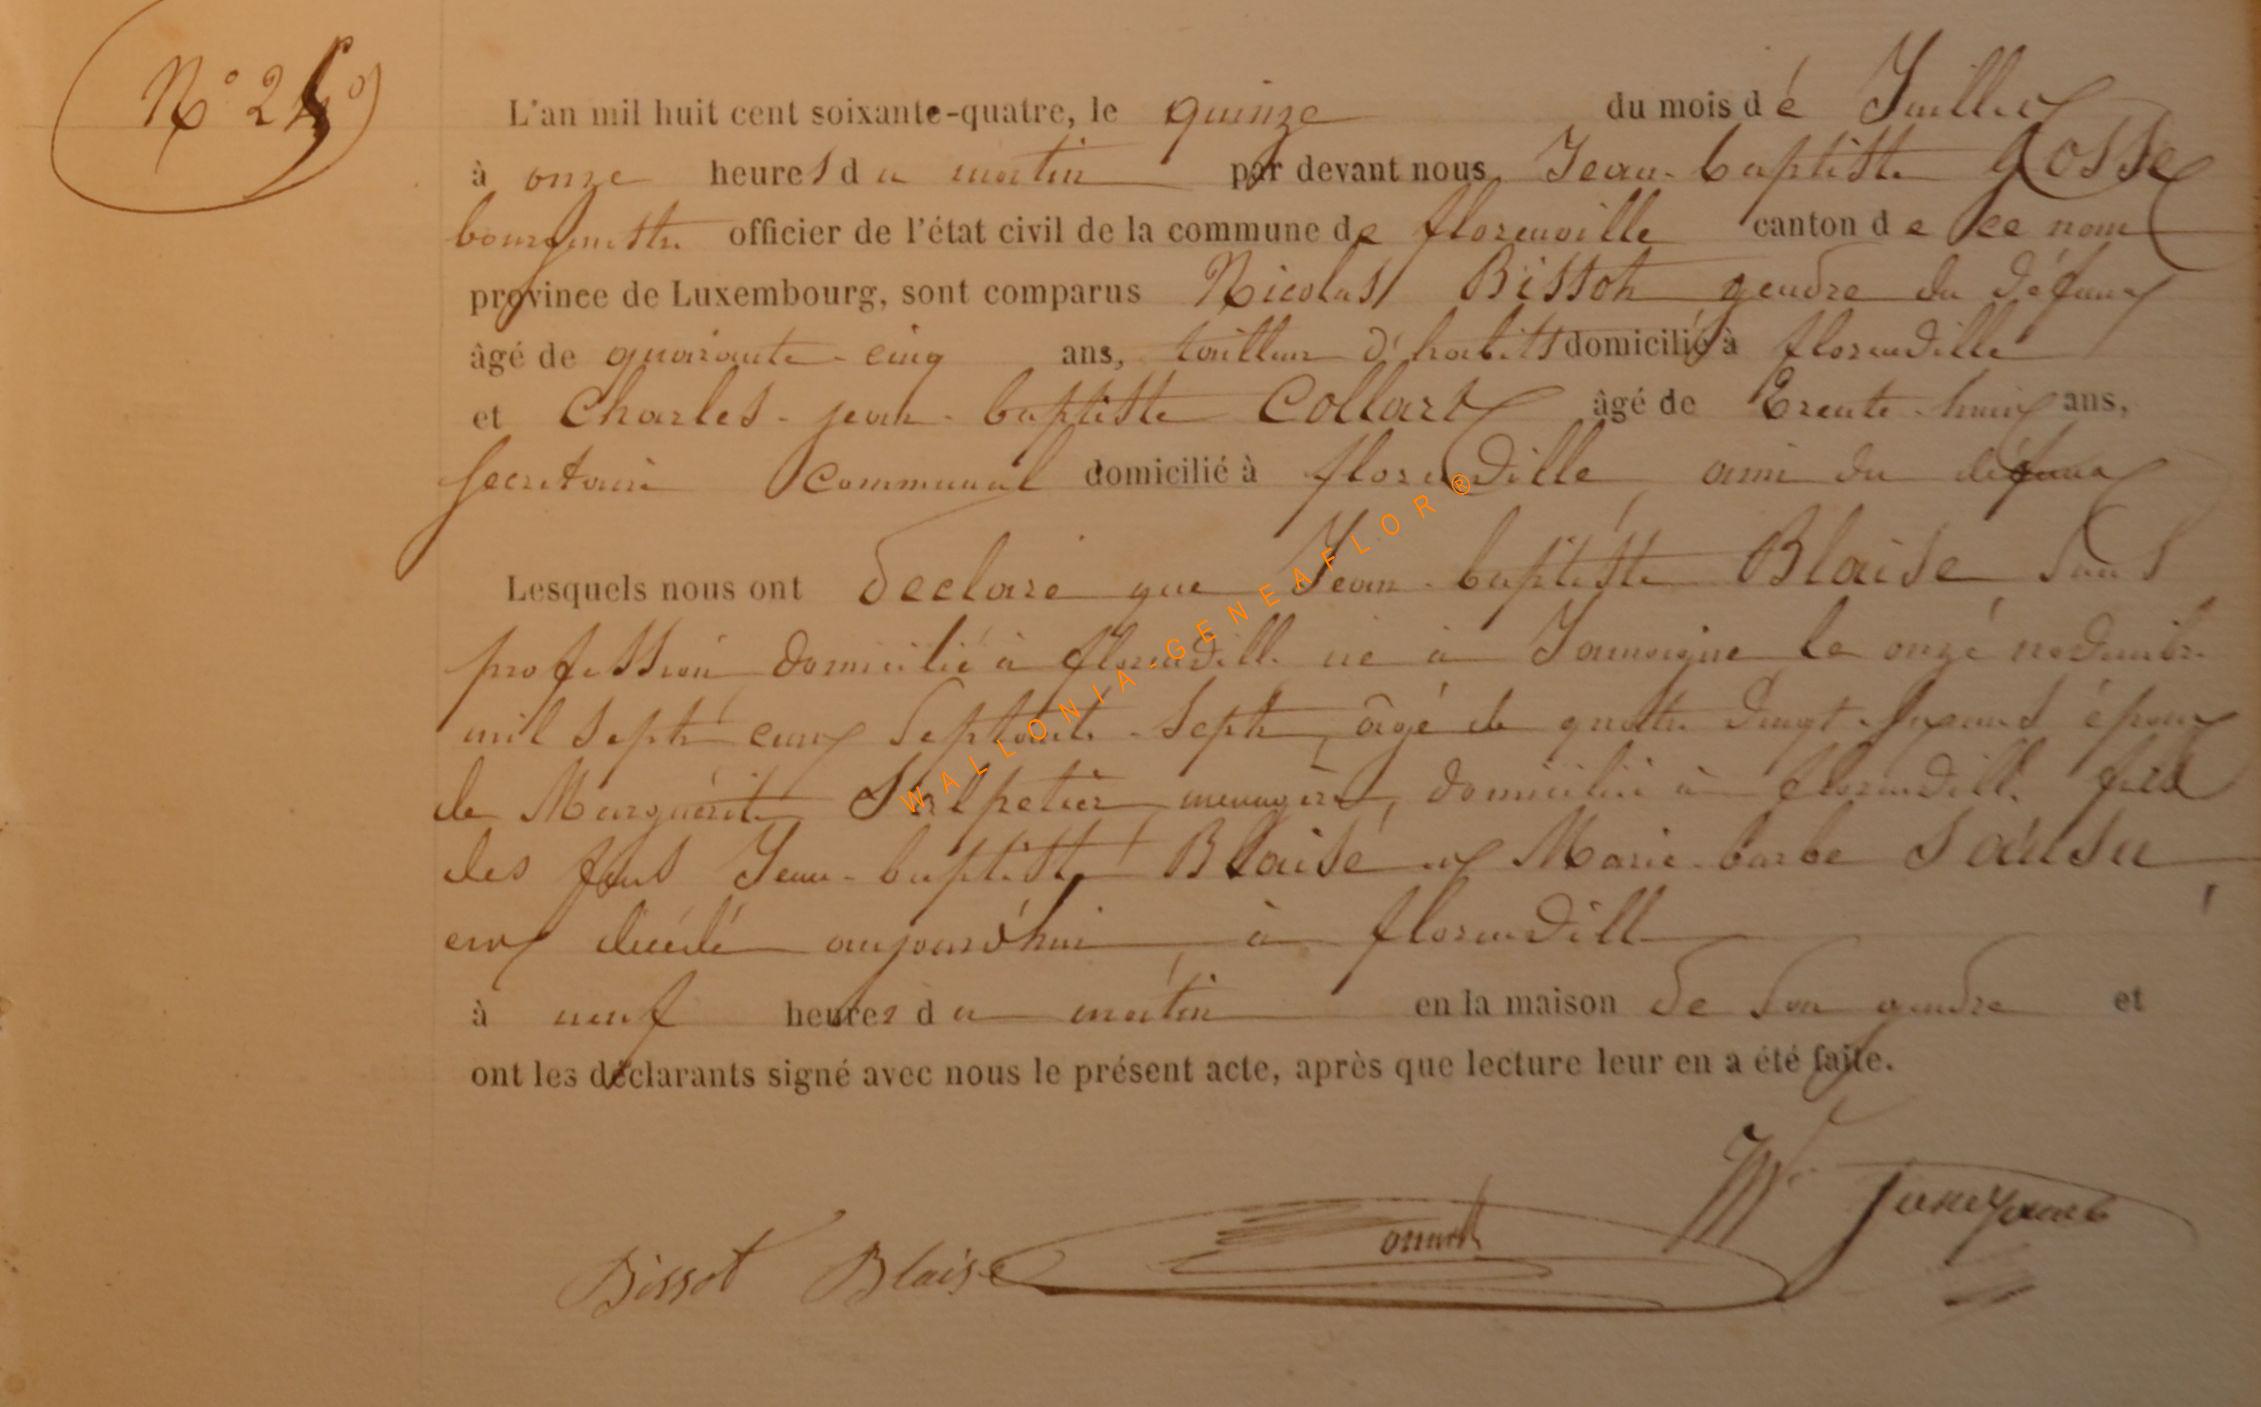 N° 25
L'an mil huit cent soixante-quatre, le quinze du mois de Juillet
à onze heures du matin par devant nous Jean-baptiste Gosse
bourgmestre officier de l'état civil de la commune de florenville canton de ce nom
province de Luxembourg, sont comparus Nicolas Bissot gendre du défunt
âgé de quarante-cinq ans, tailleur d'habits domicilié à florenville
et Charles-jean-baptiste Collart âgé de trente-huit ans,
secretaire communal domicilié à florenville, ami du défunt
Lesquels nous ont declaré que Jean-baptiste Blaise sans
profession domicilié à florenville né à Jamoigne le onze novembre
mil sept cent septante-sept, âgé de quatre vingt six ans époux
de Marguerite Salpetier menagère, domiciliée à florenville fils
des feus Jean-baptiste Blaise et Marie-barbe
est décédé aujourd'hui à florenville
à neuf heures du matin en la maison de son gendre et
ont les déclarants signé avec nous le présent acte, après que lecture leur en a été faite.
Bissot Blaise
WALLONIA-GENEAFLOR®